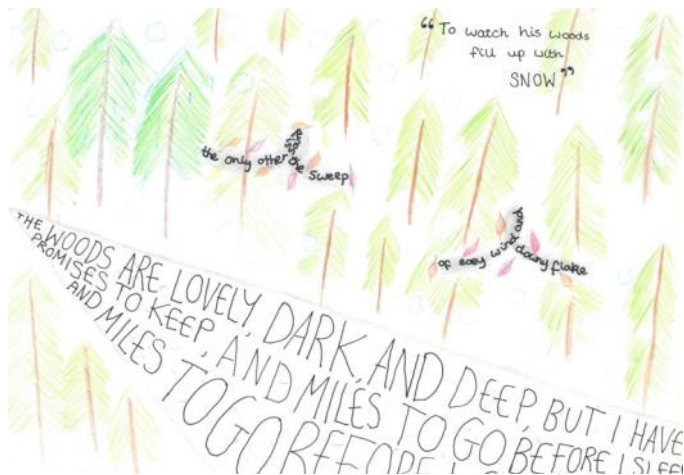 “To watch his woods
fill up with
SNOW”
the only other sound
the sweep
of easy wind and
downy flake
THE WOODS ARE LOVELY, DARK, AND DEEP, BUT I HAVE
PROMISES TO KEEP, AND MILES TO GO BEFORE I SLEEP
AND MILES TO GO BEFORE I